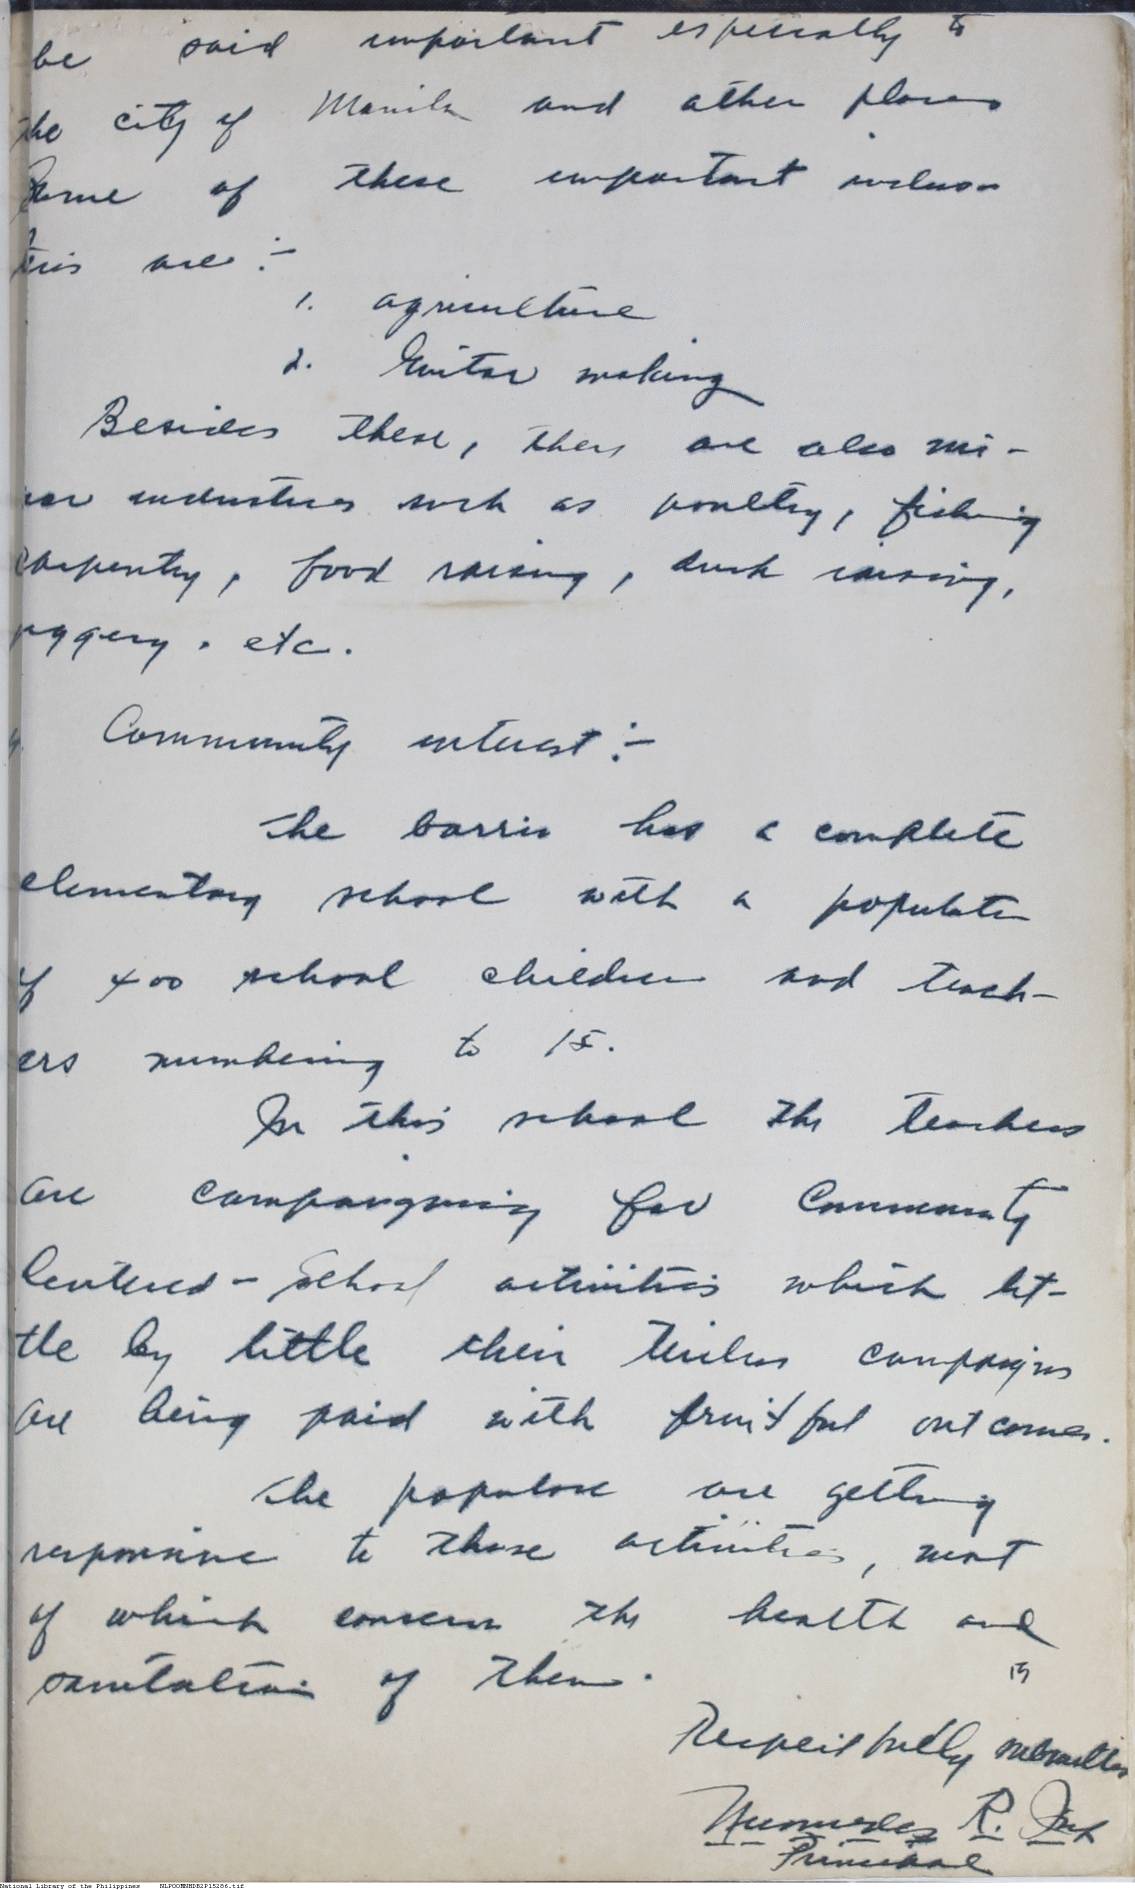 be said important especially to
the city of Manila and other places
Some of these important indus-
tries are :-
1. agriculture
2. Guitar making
Besides these, there are also mi-
nor industries such as poultry, fishing
carpentry, food raising, duck raising,
piggery, etc.
Community interest :-
The barrio has a complete
elementary school with a population
of 400 school children and teach-
ers numbering to 15.
In this school the teachers
are campaigning for Community
Centered - School activities which lit-
tle by little their tireless campaigns
are being paid with fruitful outcomes.
The populace are getting
responsive to these activities, most
of which concern the health and
sanitation of them.
Respectfully submitted
R.
Principal
National Library of the Philippines NLPOOMNHDB2P15286.tif